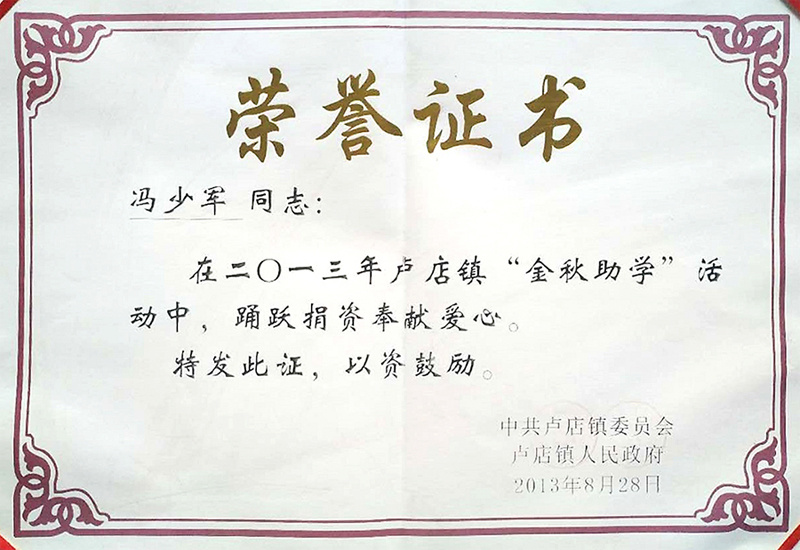 荣誉证书
冯少军 同志：
在二〇一三年卢店镇“金秋助学”活
动中，踊跃捐资奉献爱心。
特发此证，以资鼓励。
中共卢店镇委员会
卢店镇人民政府
2013年8月28日